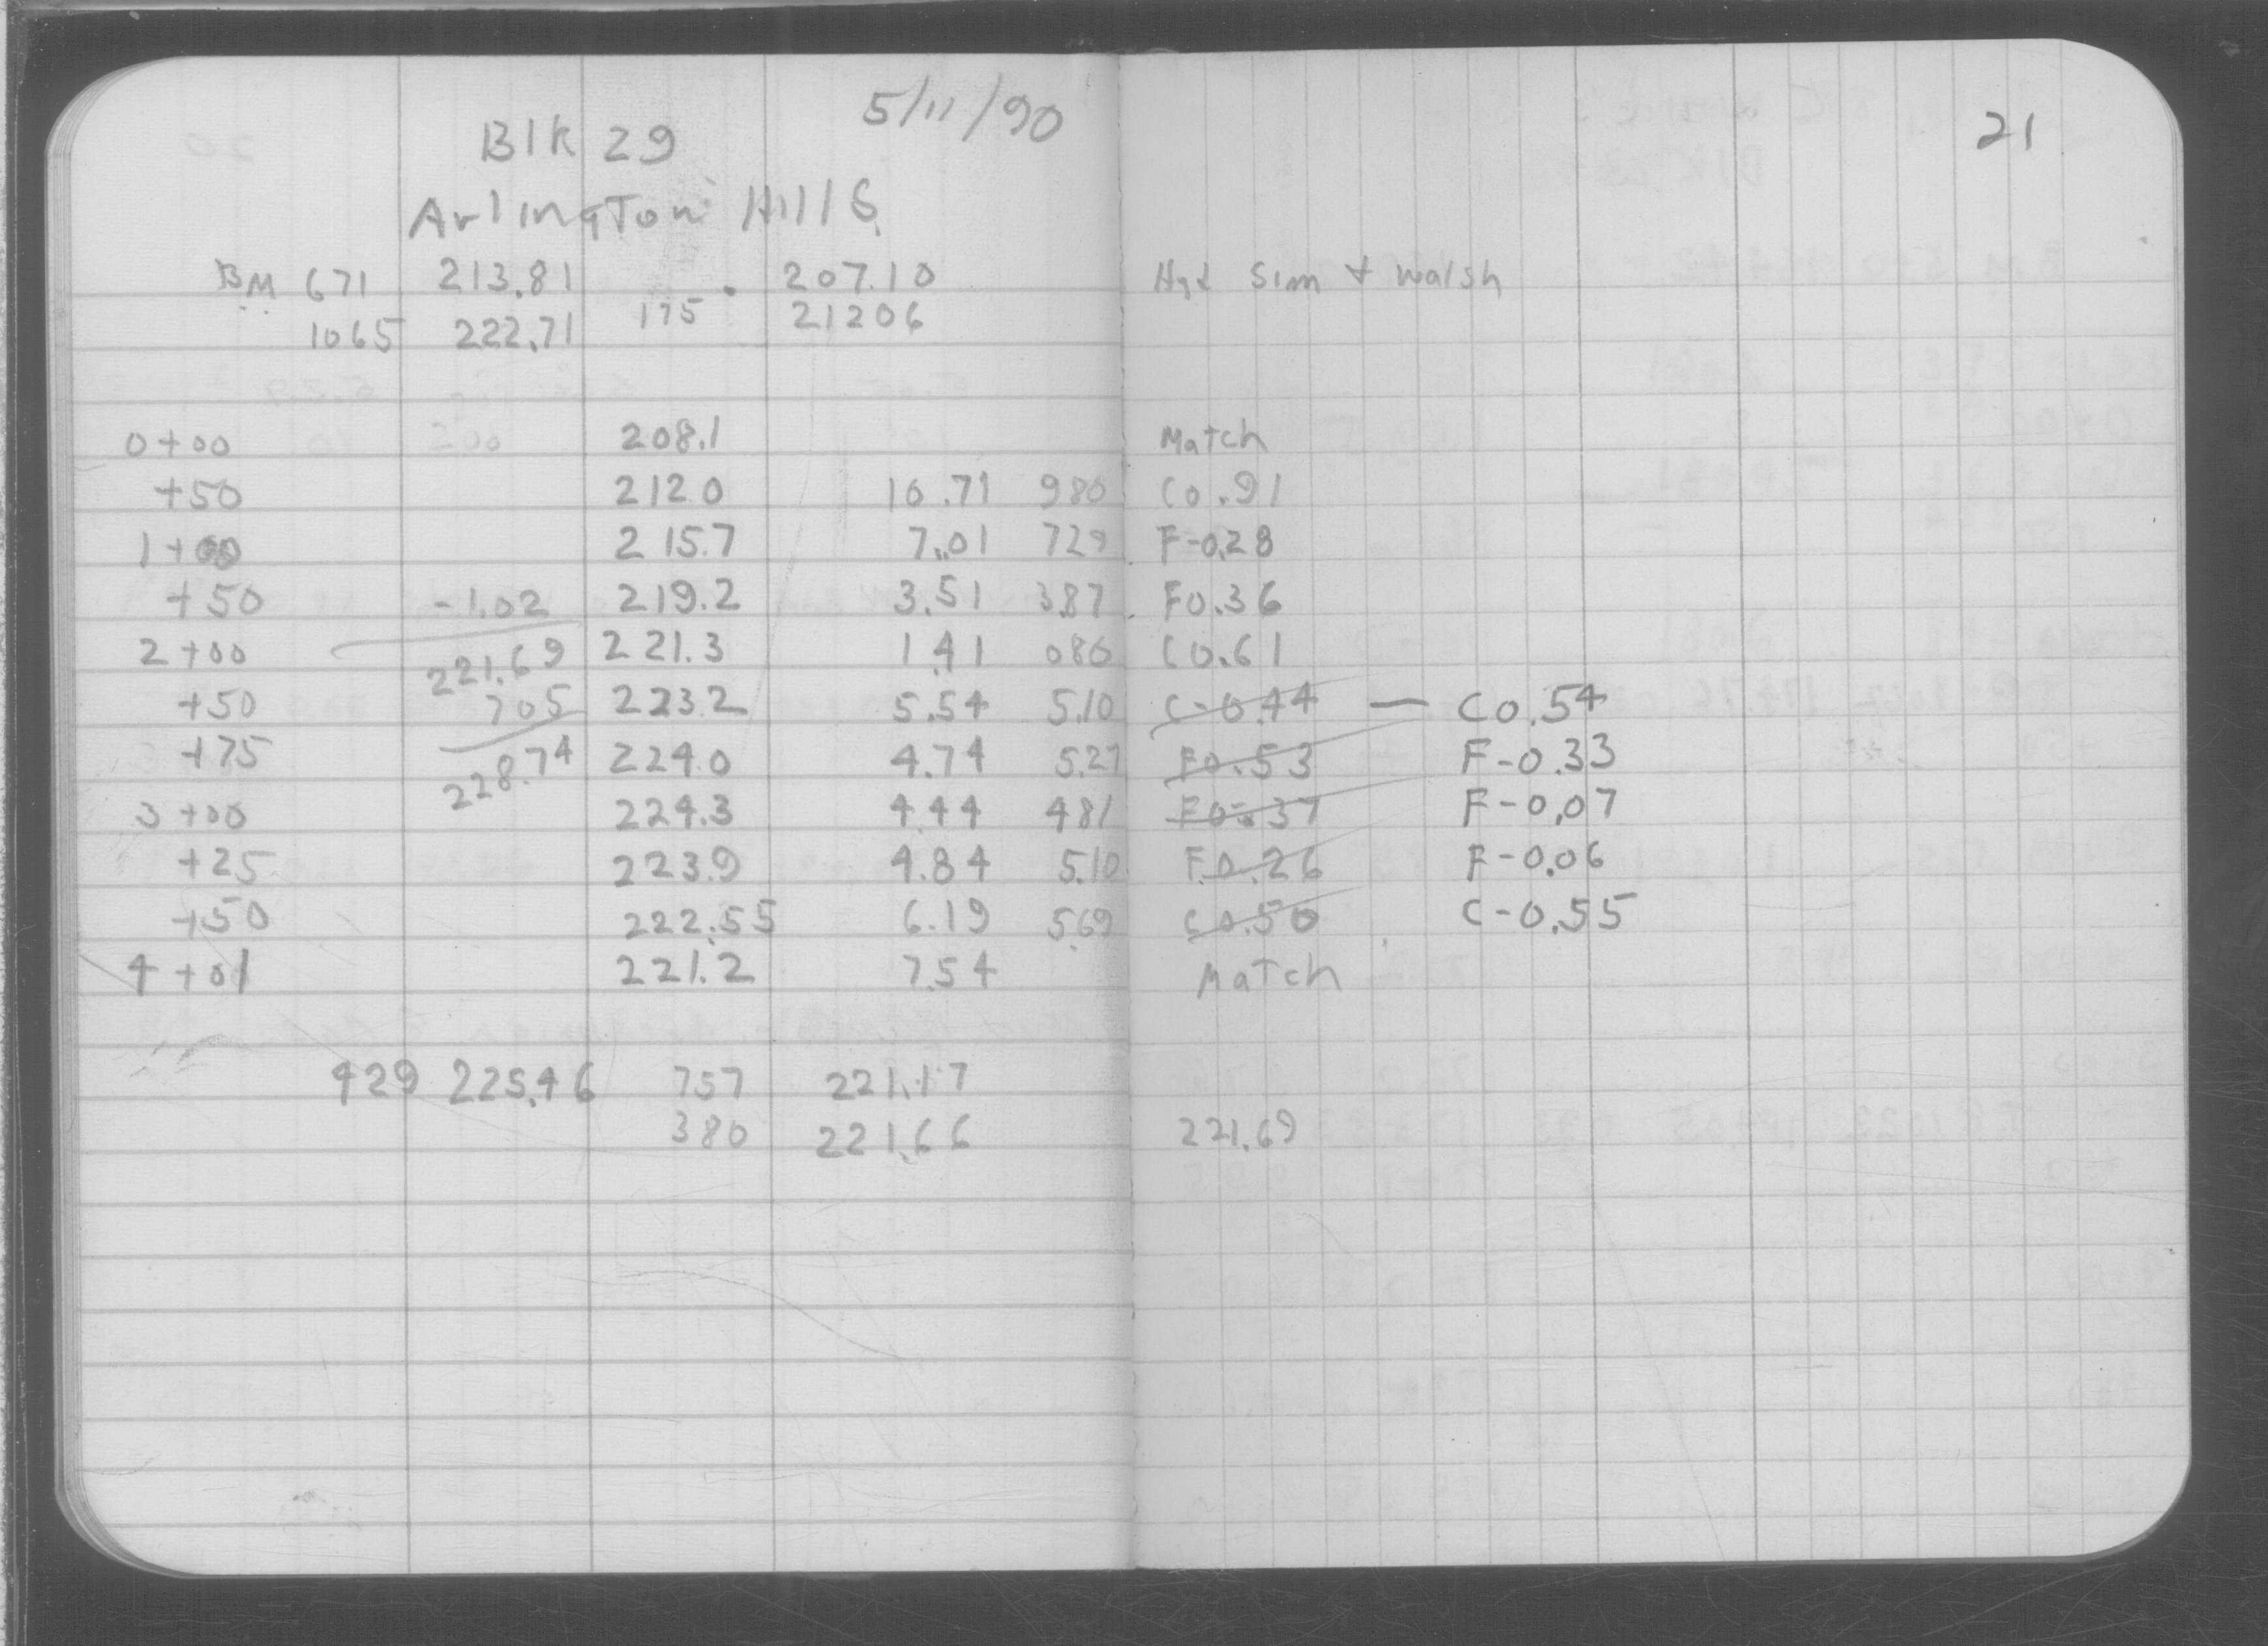 5/11/90
21
Blk 29
Arlington Hills
BM 671 213.81 207.10 Hyd Sim + Walsh
1065 222.71 175 21206
0+00 208.1 Match
+50 212.0 10.71 980 C0.91
1+00 215.7 7.01 729 F-0.28
+50 -1.02 219.2 3.51 387 F0.36
2+00 221.69 221.3 1.41 080 C0.61
+50 705 223.2 5.54 5.10 C-0.44 — C0.54
+75 228.74 224.0 4.74 5.27 F0.53 F-0.33
3+00 224.3 4.44 481 F0.37 F-0.07
+25 223.9 4.84 5.10 F.0.26 F-0.06
+50 222.55 6.19 5.69 C0.50 C-0.55
4+01 221.2 7.54 Match
429 225.46 757 221.17
380 221.66 221.69